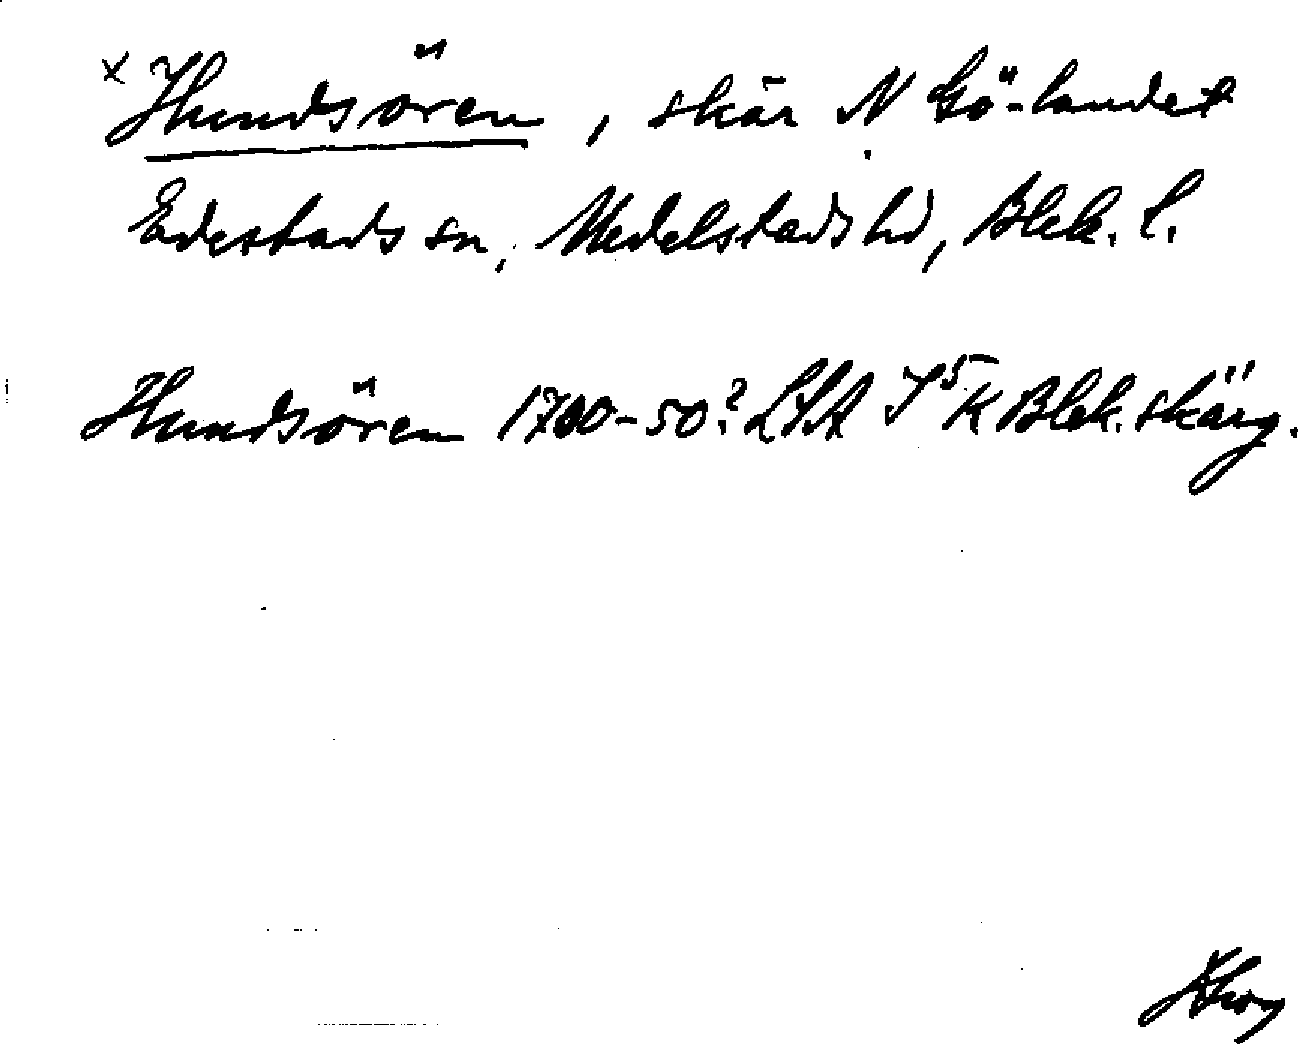 x Hundsören, skär N Gö-landet
Edestads sn, Medelstads hd, Blek. l.
Hundsören 1700-50? LSA I⁵K Blek. skärg.